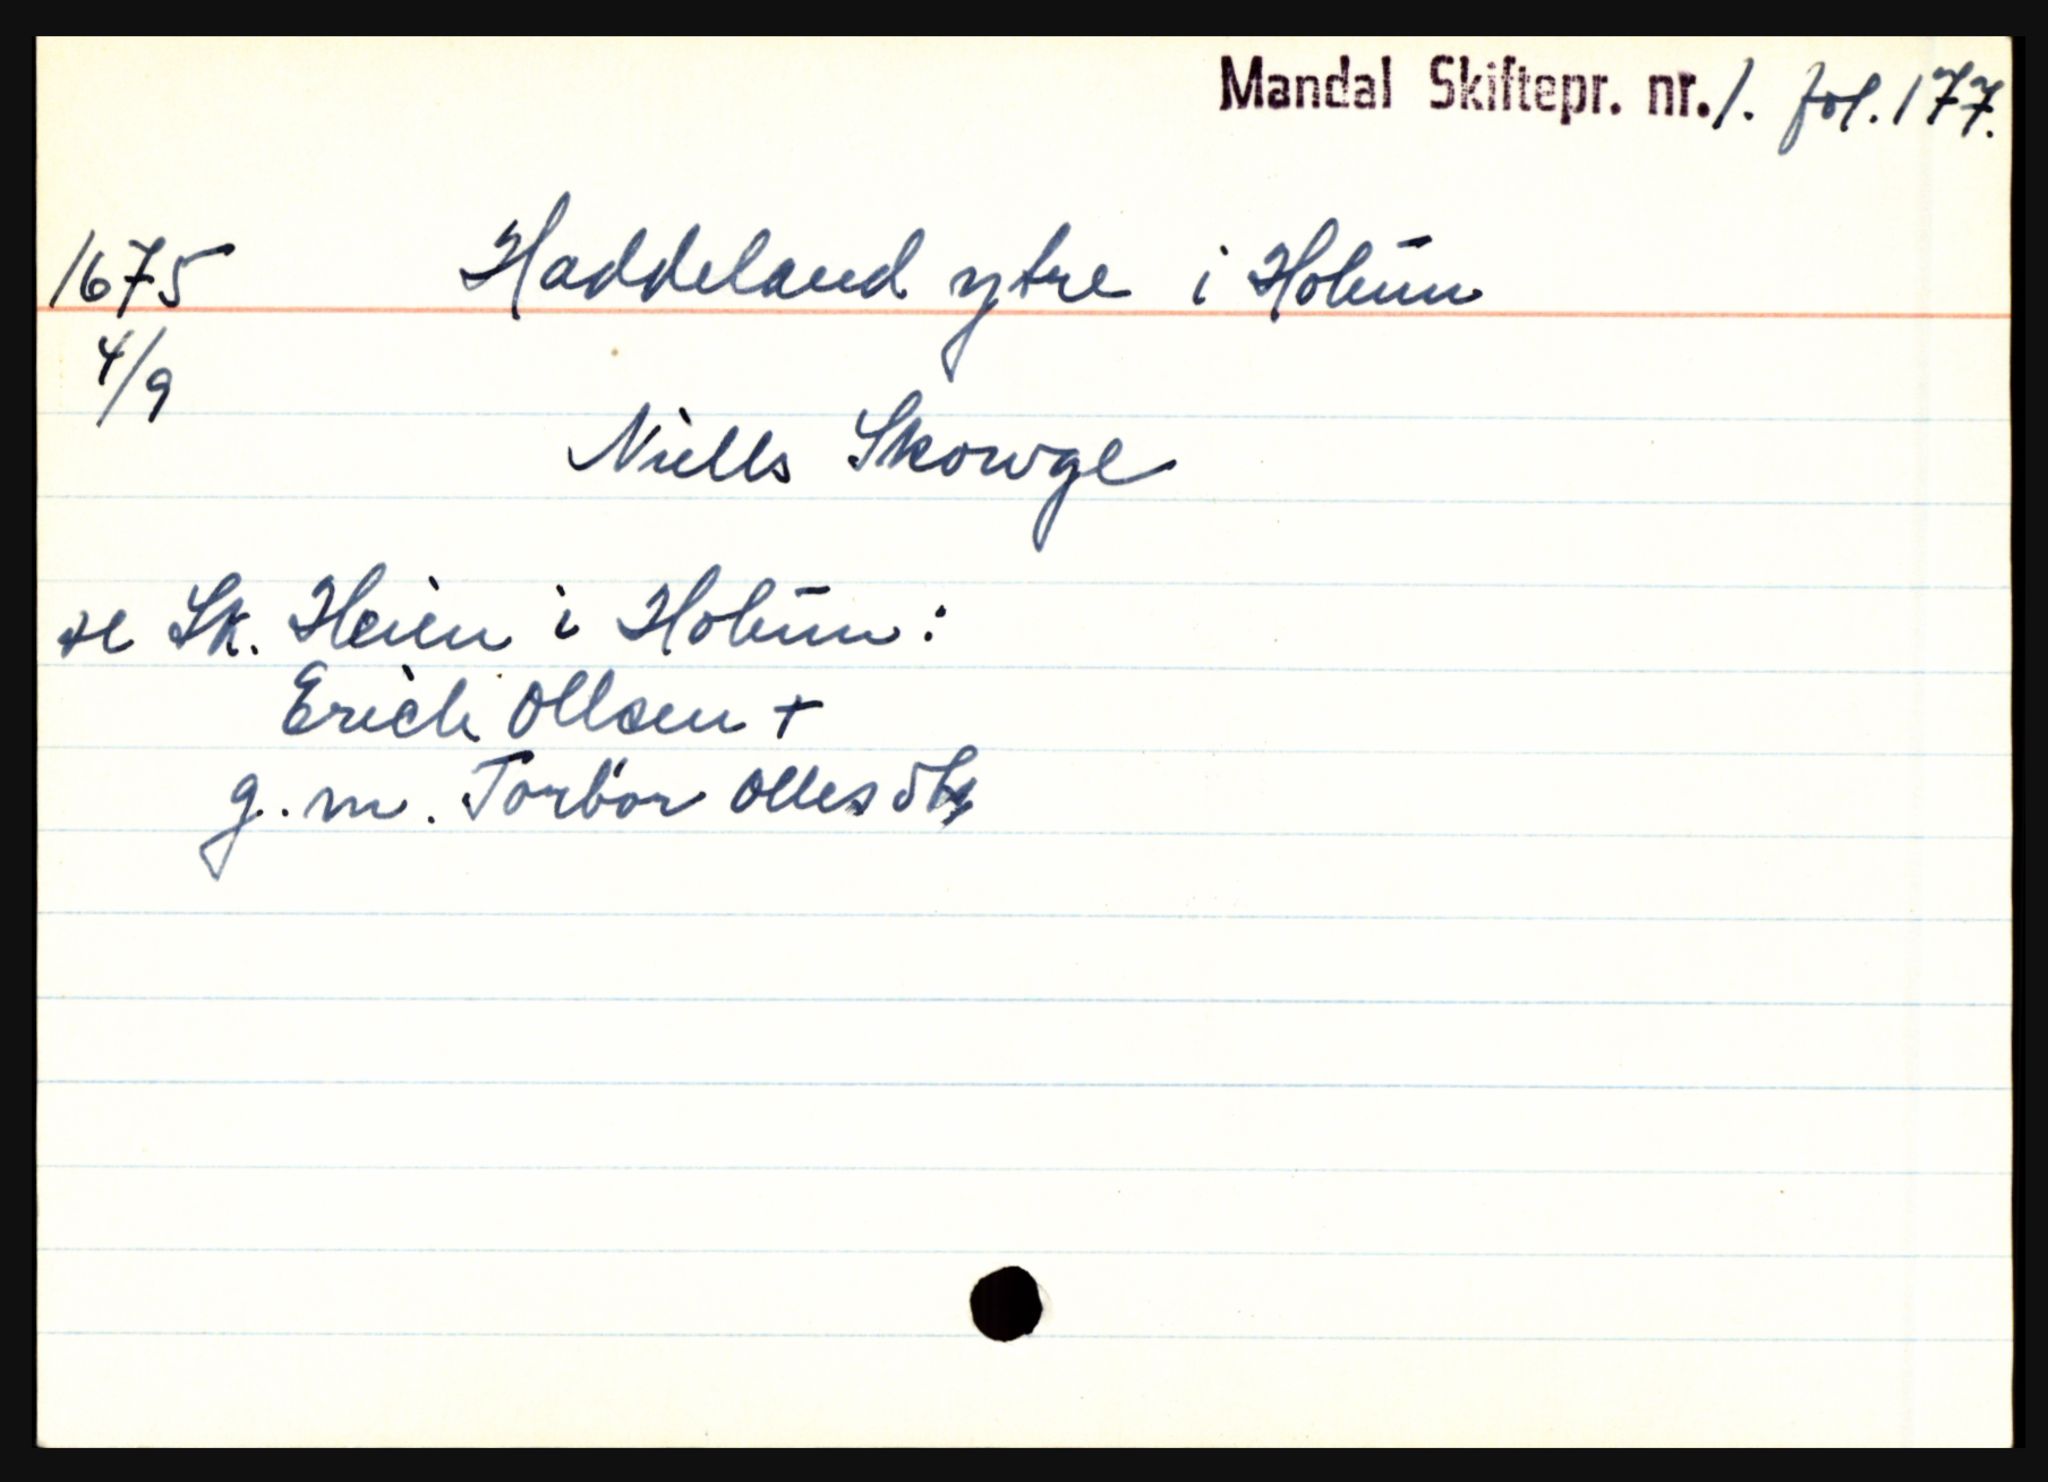 Mandal Skiftepr. nr. 1. fol. 177.
1675 Haddeland ytre i Holum
4/9
Niells Skowge
se Sk. Heien i Holum:
Erich Ollsen +
g. m. Torbor Ollesdtr